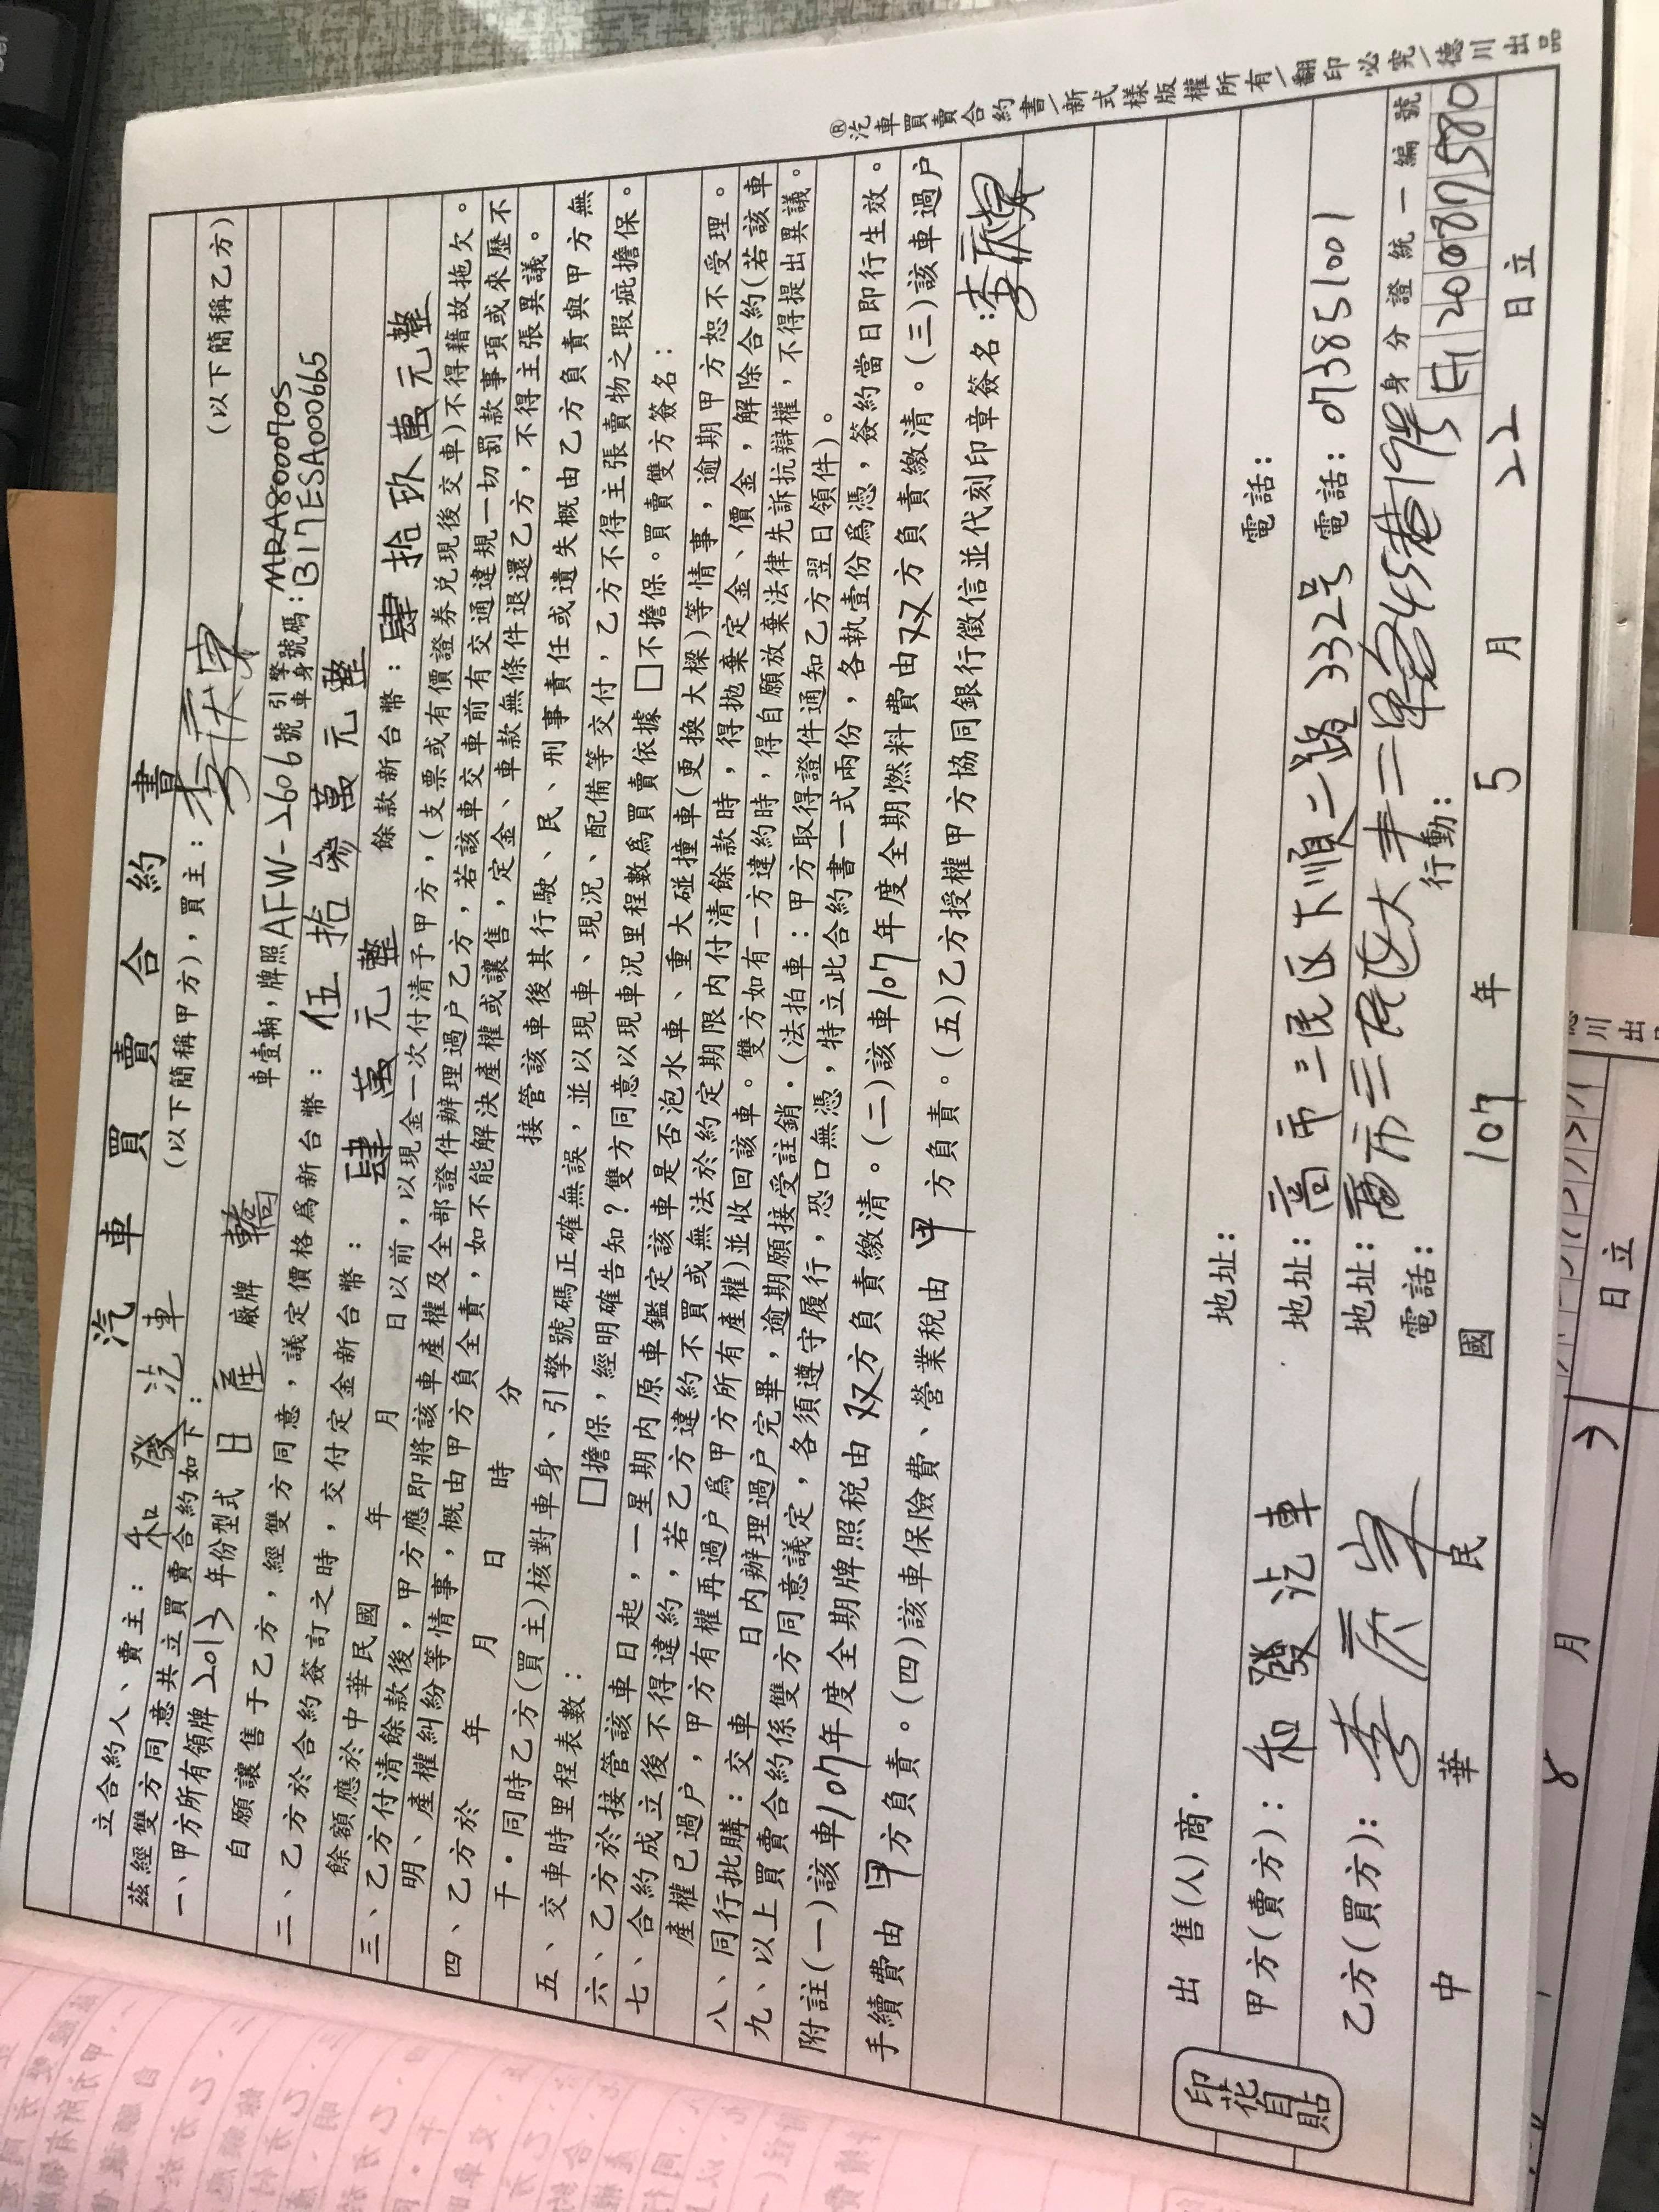 汽車買賣合約書
立合約人、賣主：和發汽車(以下簡稱甲方)，買主：李 (以下簡稱乙方)
茲經雙方同意共立買賣合約如下：
一、甲方所有領牌2013年份型式日產廠牌轎車壹輛，牌照AFW-2606號引擎車身號碼：MRA8000070S B17ESA000665
自願讓售于乙方，經雙方同意，議定價格為新台幣：伍拾參萬元整
二、乙方於合約簽訂之時，交付定金新台幣：肆萬元整 餘款新台幣：肆拾玖萬元整
餘額應於中華民國 年 月 日以前，以現金一次付清予甲方，(支票或有價證券兌現後交車)不得藉故拖欠。
三、乙方付清餘款後，甲方應即將該車產權及全部證件辦理過户乙方，若該車交車前有交通違規一切罰款事項或來歷不
明、產權糾紛等情事，概由甲方負全責，如不能解決產權或讓售，定金、車款無條件退還乙方，不得主張異議。
四、乙方於 年 月 日 時 分 接管該車後其行駛、民、刑事責任或遺失概由乙方負責與甲方無
干。同時乙方(買主)核對車身、引擎號碼正確無誤，並以現車、現況、配備等交付，乙方不得主張賣物之瑕疵擔保。
五、交車時里程表數： □擔保，經明確告知？雙方同意以現車況里程數為買賣依據□不擔保。買賣雙方簽名：
六、乙方於接管該車日起，一星期內原車鑑定該車是否泡水車、重大碰撞車(更換大樑)等情事，逾期甲方恕不受理。
七、合約成立後不得違約，若乙方違約不買或無法於約定期限內付清餘款時，得拋棄定金、價金，解除合約(若該車
產權已過户，甲方有權再過户為甲方所有產權)並收回該車。雙方如有一方違約時，得自願放棄法律先訴抗辯權，不得提出異議。
八、同行批購：交車 日內辦理過户完畢，逾期願接受註銷．(法拍車：甲方取得證件通知乙方翌日領件)。
九、以上買賣合約係雙方同意議定，各須遵守履行，恐口無憑，特立此合約書一式兩份，各執壹份為憑，簽約當日即行生效。
附註(一)該車107年度全期牌照税由双方負責繳清。(二)該車107年度全期燃料費由双方負責繳清。(三)該車過户
手續費由甲方負責。(四)該車保險費、營業稅由甲方負責。(五)乙方授權甲方協同銀行徵信並代刻印章簽名：李
出售(人)商． 地址： 電話：
甲方(賣方)：和發汽車 地址：高市三民区下順二路332号 電話：073851001
乙方(買方)：李 地址：高市三民区大丰二 身分證統一編號
電話： 行動： 200087580
中華民國107年5月22日立
印花自貼
®汽車買賣合約書/新式樣版權所有/翻印必究/德川出品
8月
日立
川出品